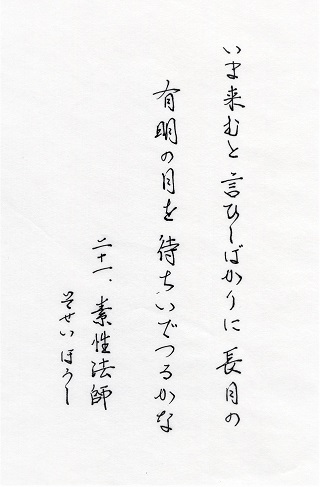 いま来むと 言ひしばかりに 長月の
有明の月を 待ちいでつるかな
二十一、素性法師
そせいほうし